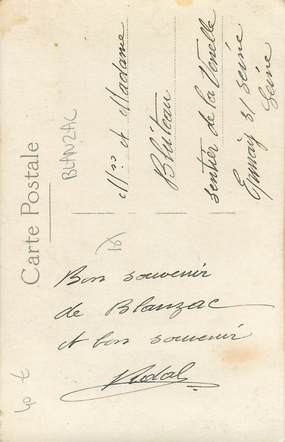 Carte Postale
BLANZAC
Mr et Madame
Bluteau
sentier de la Venelle
Epinay s/ Seine
Seine
Bon souvenir
de Blanzac
et bon souvenir